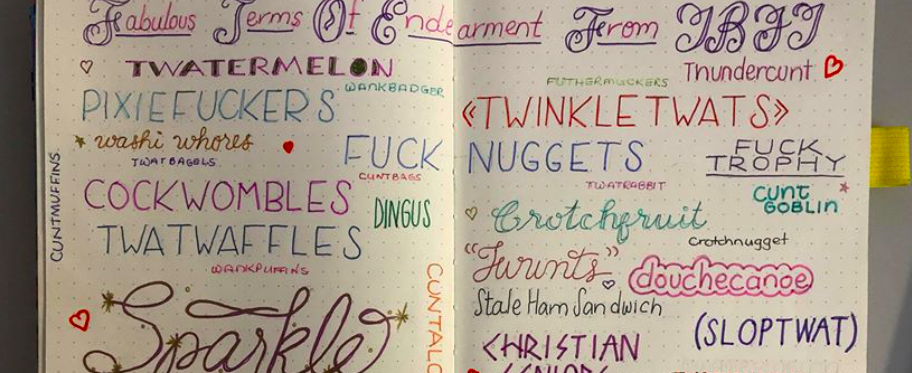 Fabulous Terms Of Endearment From JBFJ
TWATERMELON
WANKBADGER
PIXIEFUCKERS
washi whores
TWATBAGELS
FUCK NUGGETS
CUNTBAGS
CUNTMUFFINS
COCKWOMBLES
DINGUS
TWATWAFFLES
WANKPUFFINS
Sparkle
Thundercunt
FUTHERMUCKERS
«TWINKLETWATS»
FUCK
TROPHY
TWATRABBIT
CUNT
GOBLIN
Crotchfruit
Crotchnugget
"Twunts"
douchecanoe
Stale Ham Sandwich
(SLOPTWAT)
CHRISTIAN